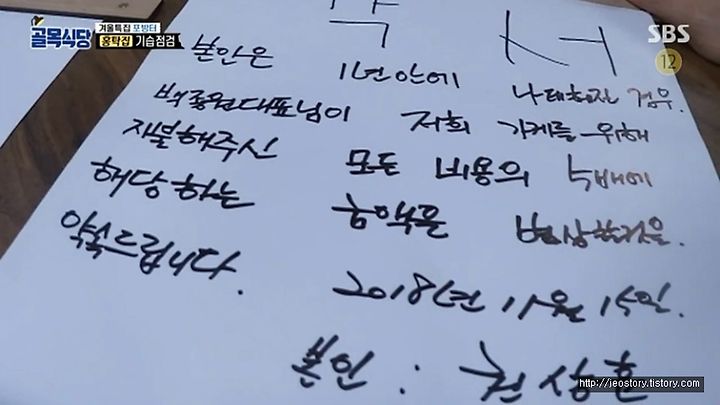 겨울특집 포방터
골목식당 홍탁집 기습점검
SBS
12
각 서
본인은 1년안에 나태해질 경우.
백종원대표님이 저희 가게를 위해
지불해주신 모든 비용의 5배에
해당 하는 금액을 변상할것을.
약속드립니다.
2018년 11월 15일.
본인 : 권상훈
http://jeostory.tistory.com